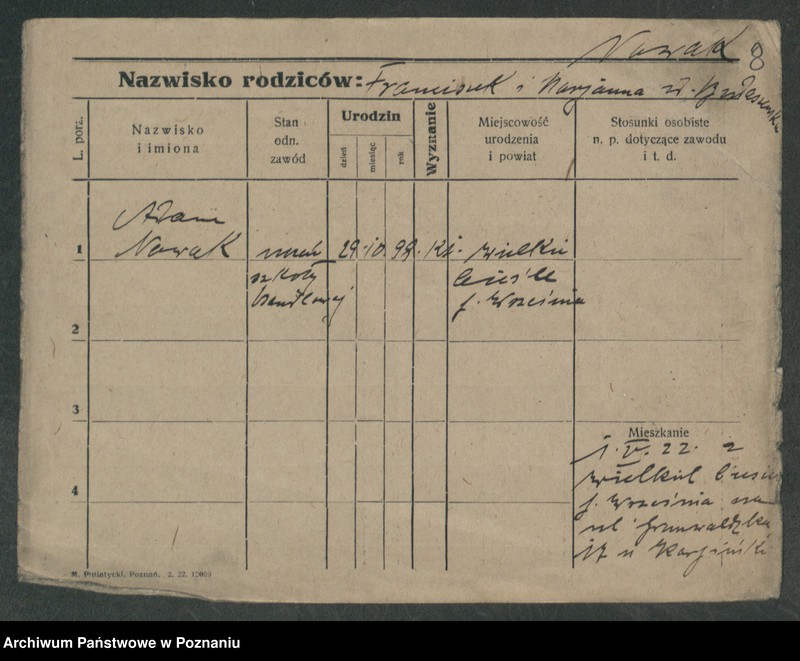 Nowak 8
Nazwisko rodziców: Franciszek i Marjanna
L. porz.
Nazwisko
i imiona
Stan
odn.
zawód
Urodzin
dzień
miesiąc
rok
Wyznanie
Miejscowość
urodzenia
i powiat
Stosunki osobiste
n. p. dotyczące zawodu
i t. d.
Adam
1 Nowak uczeń 29. 10. 99. kt. Wielkie
szkoły
handlowej p. Września
2
3
Mieszkanie
1. V. 22. z
4
p. Września na
ul Grunwaldzka
17 u
M. Putiatycki, Poznań. 2. 22. 12000
Archiwum Państwowe w Poznaniu